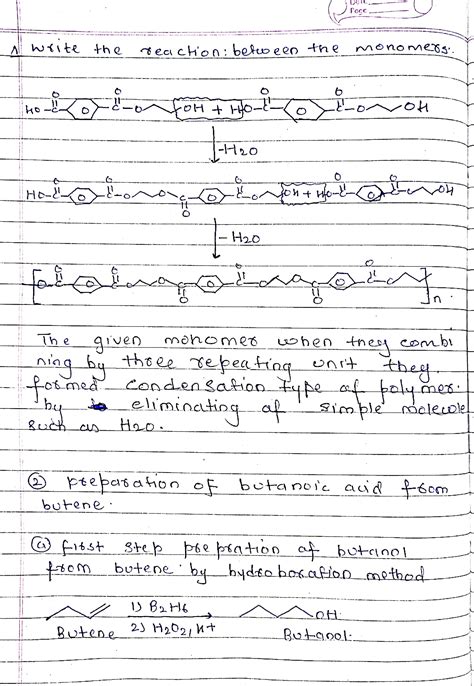 Date
Page
1 Write the reaction: between the monomers.
HO-C O C-O OH + HO-C O C-O OH
-H2O
HO-C O C-O O C O C-O OH + HO-C O C-O OH
-H2O
[O-C O C-O O C O C-O O C O C-O]n.
The given monomer when they combi
ning by three repeating unit they.
formed condensation type of polymer.
by eliminating of simple molecule
such as H2O.
② preparation of butanoic acid from
butene.
ⓐ first step prepration of butanol
from butene by hydroboration method
1) B2H6
OH
Butene 2) H2O2, H+ Butanol.